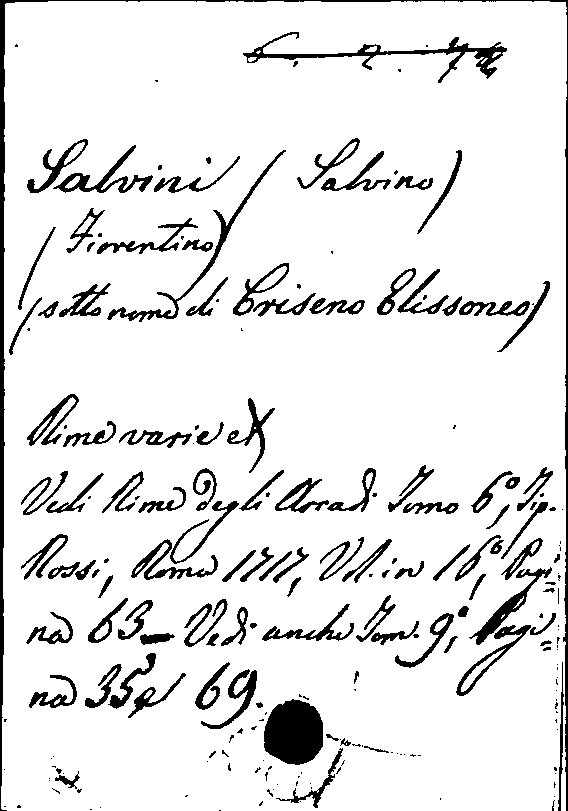 6. 2. 7
Salvini (Salvino)
(Fiorentino)
(sotto nome di Criseno Elissoneo)
Rime varie
Vedi Rime degli Arcadi Tomo 6°, Tip.
Rossi, Roma 1717, Vol. in 16°, Pagi=
na 63 — Vedi anche Tom. 9°, Pagi=
na 353 e 69.